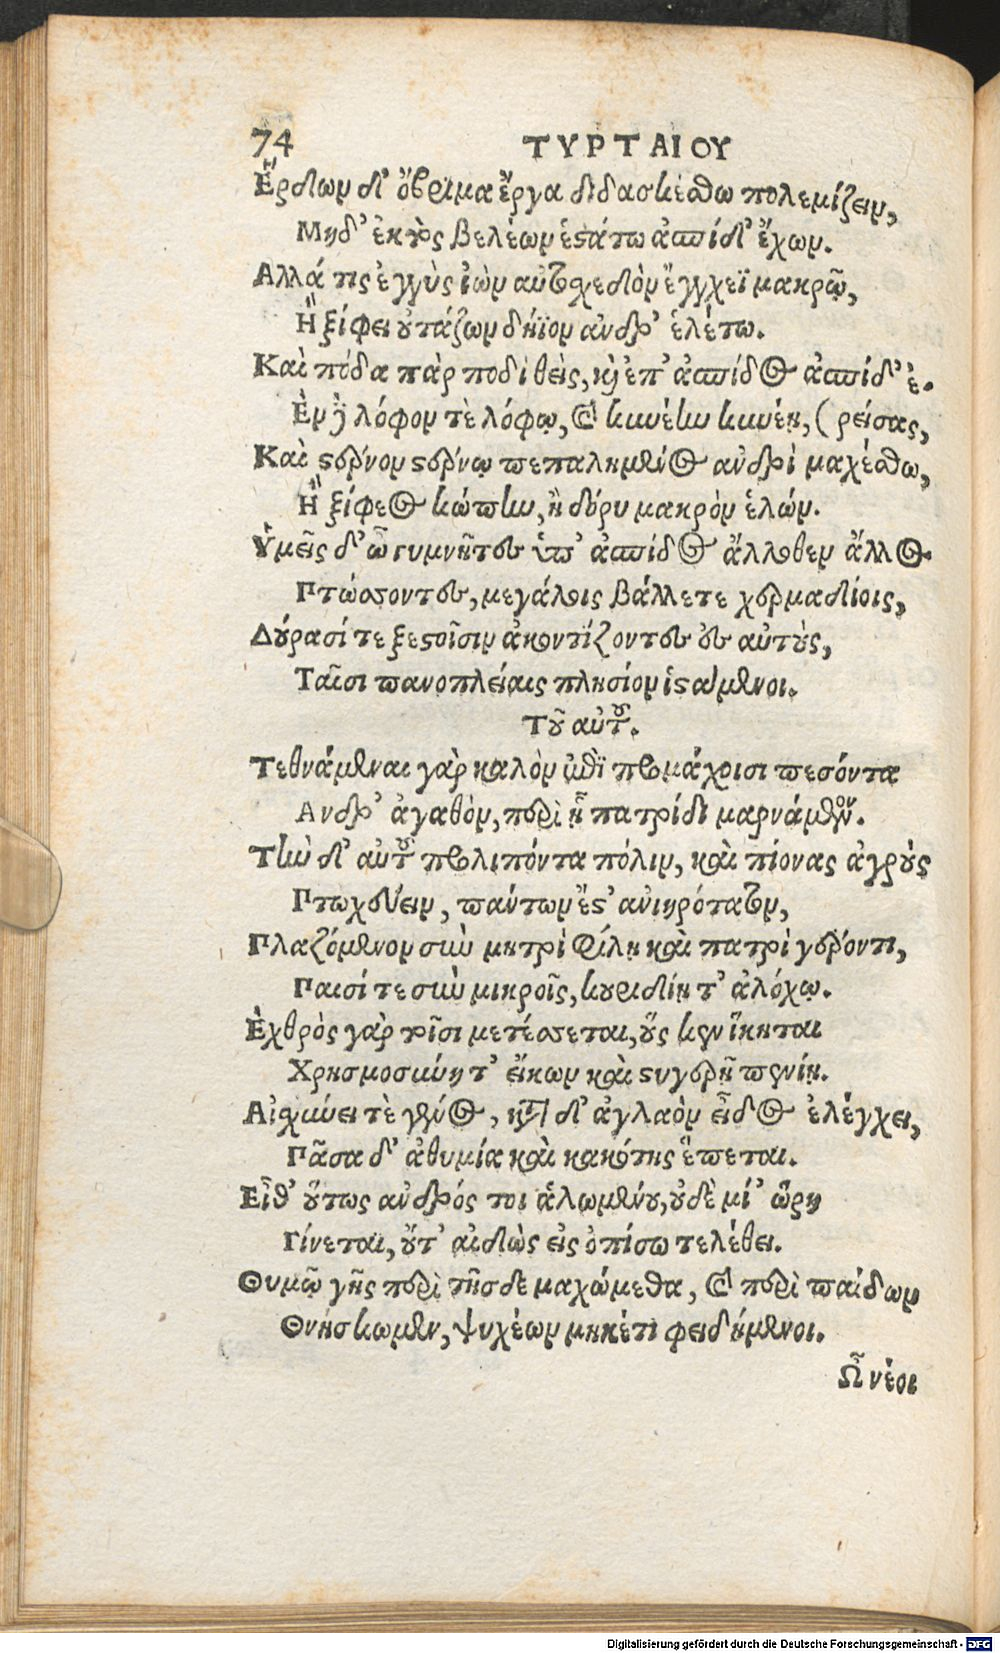 74 ΤΥΡΤΑΙΟΥ
Ἔρδων δ' ὄβριμα ἔργα διδασκέσθω πολεμίζειν,
Μηδ' ἐκτὸς βελέων ἑστάτω ἀσπίδ' ἔχων.
Αλλά τις ἐγγὺς ἰὼν αὐτοσχεδὸν ἔγχεϊ μακρῷ,
Ἢ ξίφει οὐτάζων δήϊον ἄνδρ' ἑλέτω.
Καὶ πόδα πὰρ ποδὶ θεὶς, καὶ ἐπ' ἀσπίδος ἀσπίδ' ἐ.
Ἐν δὲ λόφον τὲ λόφῳ, καὶ κυνέην κυνέῃ, (ρείσας,
Καὶ στέρνον στέρνῳ πεπαλημένος ἀνδρὶ μαχέσθω,
Ἢ ξίφεος κώπην, ἢ δόρυ μακρὸν ἑλών.
Ὑμεῖς δ' ὦ γυμνῆτες ὑπ' ἀσπίδος ἄλλοθεν ἄλλος
Πτώσσοντες, μεγάλοις βάλλετε χερμαδίοις,
Δούρασί τε ξεστοῖσιν ἀκοντίζοντες ἐς αὐτοὺς,
Ταῖσι πανοπλείαις πλησίον ἱστάμενοι.
Τοῦ αὐτοῦ.
Τεθνάμεναι γὰρ καλὸν ἐπὶ προμάχοισι πεσόντα
Ανδρ' ἀγαθὸν, περὶ ᾗ πατρίδι μαρνάμενον.
Τὴν δ' αὐτοῦ προλιπόντα πόλιν, καὶ πίονας ἀγροὺς
Πτωχεύειν, πάντων ἔστ' ἀνιηρότατον,
Πλαζόμενον σὺν μητρὶ φίλῃ καὶ πατρὶ γέροντι,
Παισί τε σὺν μικροῖς, κουριδίῃ τ' ἀλόχῳ.
Ἐχθρὸς γὰρ τοῖσι μετέσσεται, οὕς κεν ἵκηται
Χρησμοσύνῃ τ' εἴκων καὶ στυγερῇ πενίῃ.
Αἰσχύνει τὲ γένος, κατὰ δ' ἀγλαὸν εἶδος ἐλέγχει,
Πᾶσα δ' ἀθυμία καὶ κακότης ἕπεται.
Εἶθ' οὕτως ἀνδρός τοι ἀλωμένου, οὐδὲ μί' ὥρη
Γίνεται, οὔτ' αἰδὼς εἰς ὀπίσω τελέθει.
Θυμῷ γῆς περὶ τῆσδε μαχώμεθα, καὶ περὶ παίδων
Θνήσκωμεν, ψυχέων μηκέτι φειδόμενοι.
Ὦ νέοι
Digitalisierung gefördert durch die Deutsche Forschungsgemeinschaft - DFG